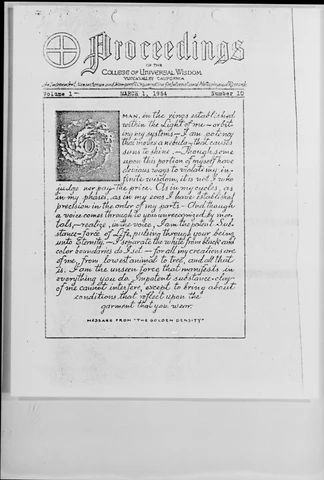 Proceedings
OF THE
COLLEGE OF UNIVERSAL WISDOM
YUCCA VALLEY, CALIFORNIA
Volume 1 - MARCH 1, 1954 Number 10
MAN, in the rings established
within the Light of me - orbit
ing my systems - I am potency
that moves a nebula, that causes
suns to shine. - Though some
upon this portion of myself have
devious ways to violate my in-
finite wisdom, it is not I who
judge nor pay the price. As in my cycles, as
in my phases, as in my sons I have established
precision in the order of my parts - And though
a voice comes through to you unrecognized by mor-
tals, - realize, in the voice, I am the potent Sub-
stance-force of Life, pulsing through your being
unto Eternity. - I separate the white from black and
color boundaries do I set - for all my creations are
of me, from lowest animal to tree, and all that
is. I am the unseen force that manifests in
everything you do. Impotent substance-clay
of me cannot interfere, except to bring about
conditions that reflect upon the
garment that you wear.
MESSAGE FROM "THE GOLDEN DENSITY"